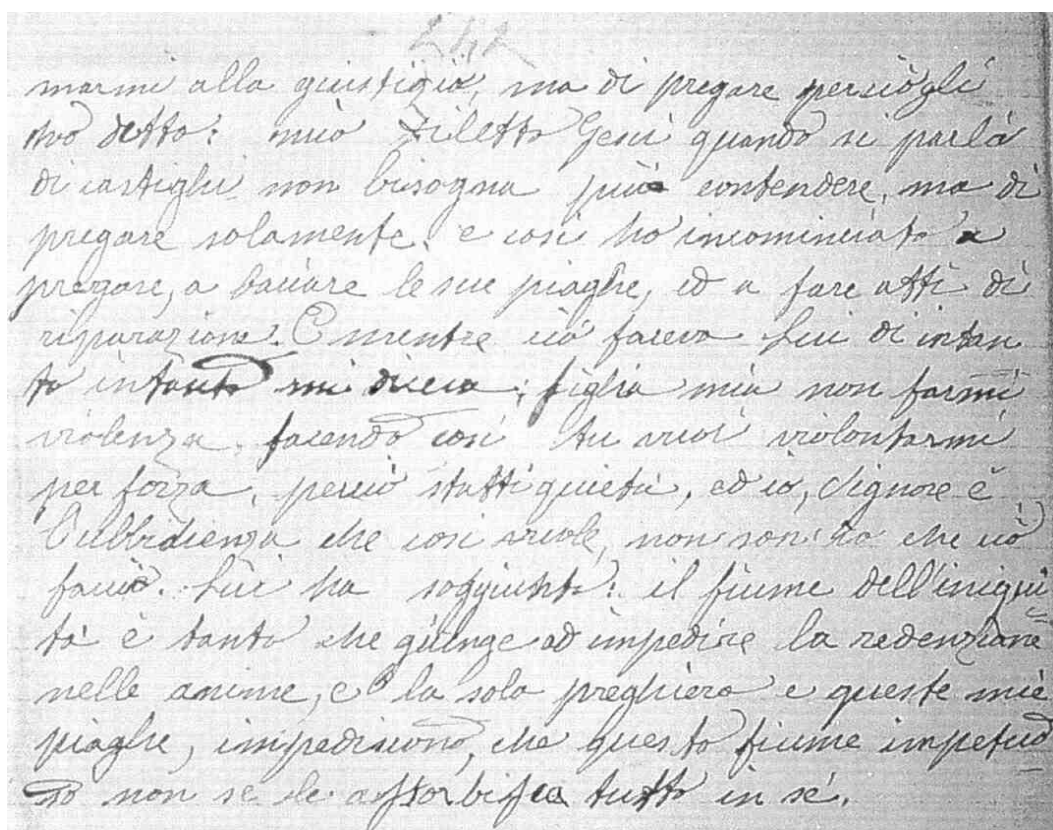 242
marmi alla giustizia, ma di pregare perciò gli
ho detto: mio Diletto Gesù quando si parla
di castighi non bisogna più contendere, ma di
pregare solamente, e così ho incominciato a
pregare, a baciare le sue piaghe, ed a fare atti di
riparazione. E mentre ciò faceva Lui di intan
to intanto mi diceva: figlia mia non farmi
violenza, facendo così tu vuoi violentarmi
per forza, perciò statti quieta, ed io, Signore è
l'ubbidienza che così vuole, non son'io che ciò
faccio. Lui ha soggiunto: il fiume dell'iniqui
tà è tanto che giunge ad impedire la redenzione
nelle anime, e la sola preghiera e queste mie
piaghe, impediscono, che questo fiume impetuo
so non se le assorbisca tutto in sé.